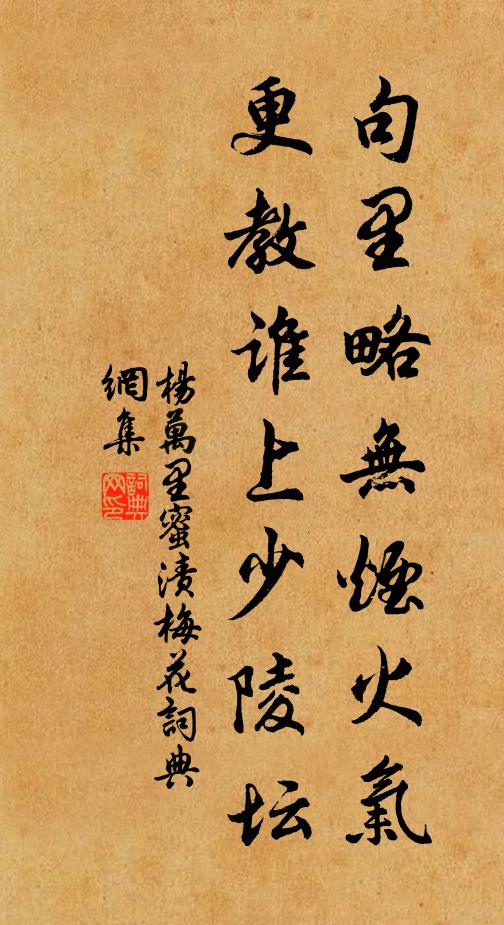 句里略無煙火氣
更教誰上少陵坛
楊萬里蜜漬梅花詞典
網集
詞典
网印